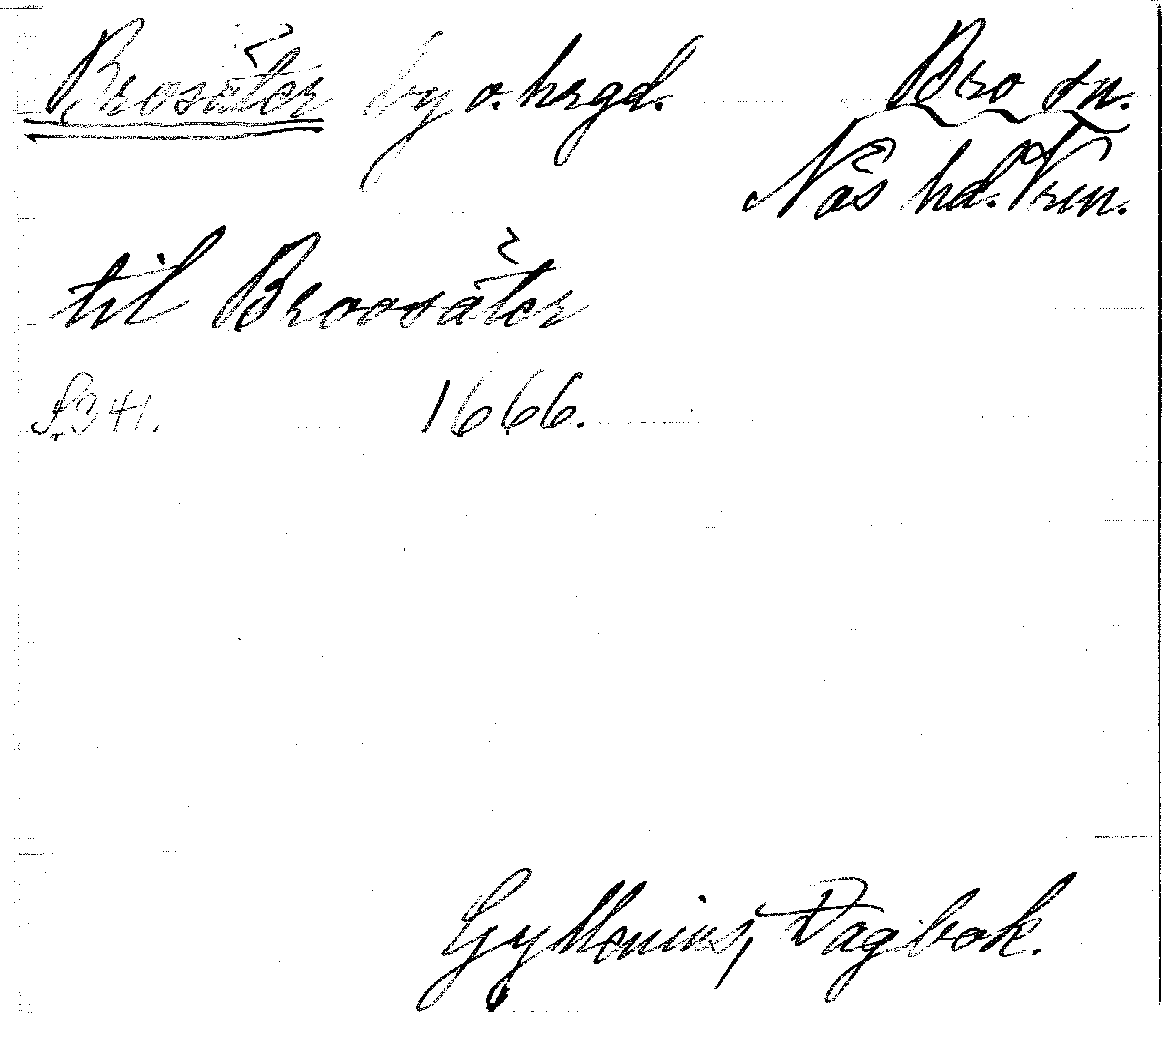 Brosäter by o. hrgd. Bro sn.
Näs hd. Vrm.
til Broosäter
S. 341. 1666.
Gyllenius, Dagbok.